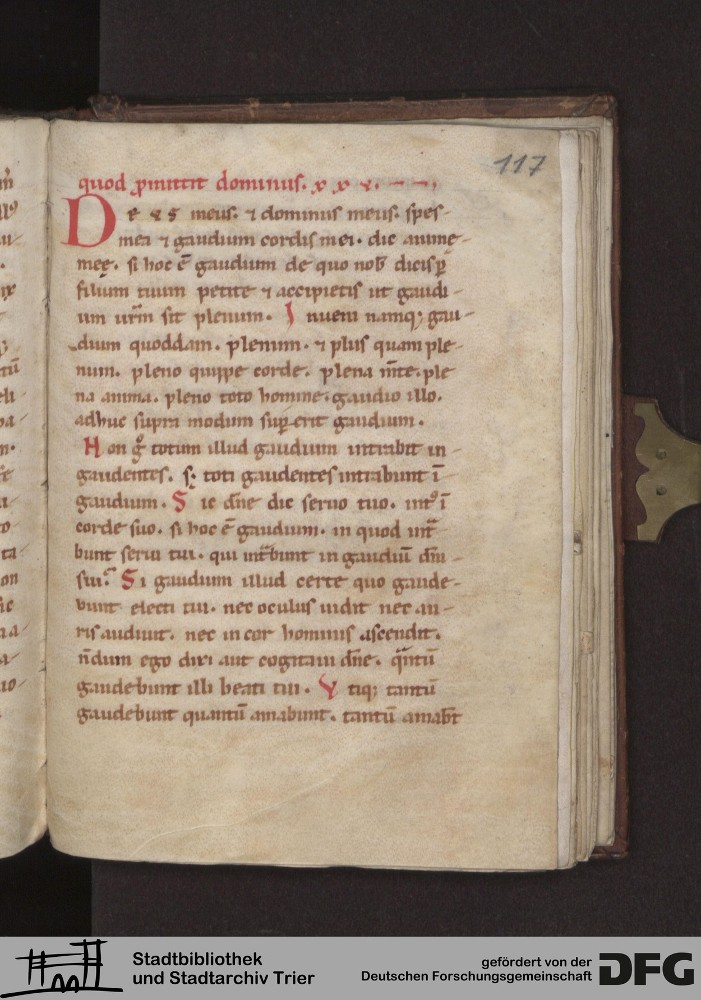 117
quod ꝓmittit dominus. xxv.
Deus meus. ⁊ dominus meus. spes
mea ⁊ gaudium cordis mei. dic anime
meę. si hoc ē gaudium de quo nob̄ dicis ꝑ
filium tuum petite ⁊ accipietis ut gaudi
um ur̄m sit plenum. Inueni namq; gau
dium quoddam. plenum. ⁊ plus quam ple
num. pleno quippe corde. plena m̄te. ple
na anima. pleno toto homine. gaudio illo.
adhuc supra modum suꝑerit gaudium.
Non gͦ totum illud gaudium intrabit in
gaudentes. s; toti gaudentes intrabunt ī
gaudium. Sic dn̄e dic seruo tuo. int᷒ ī
corde suo. si hoc ē gaudium. in quod int̄
bunt serui tui. qui int̄bunt in gaudiū dn̄i
sui. Si gaudium illud certe quo gaude
bunt electi tui. nec oculus uidit nec au
ris audiuit. nec in cor hominis ascendit.
n̄dum ego dixi aut cogitaui dn̄e. q̄ntū
gaudebunt illi beati tui. Vtiq; tantū
gaudebunt quantū amabunt. tantū amab̄t
Stadtbibliothek
und Stadtarchiv Trier
gefördert von der
Deutschen Forschungsgemeinschaft
DFG